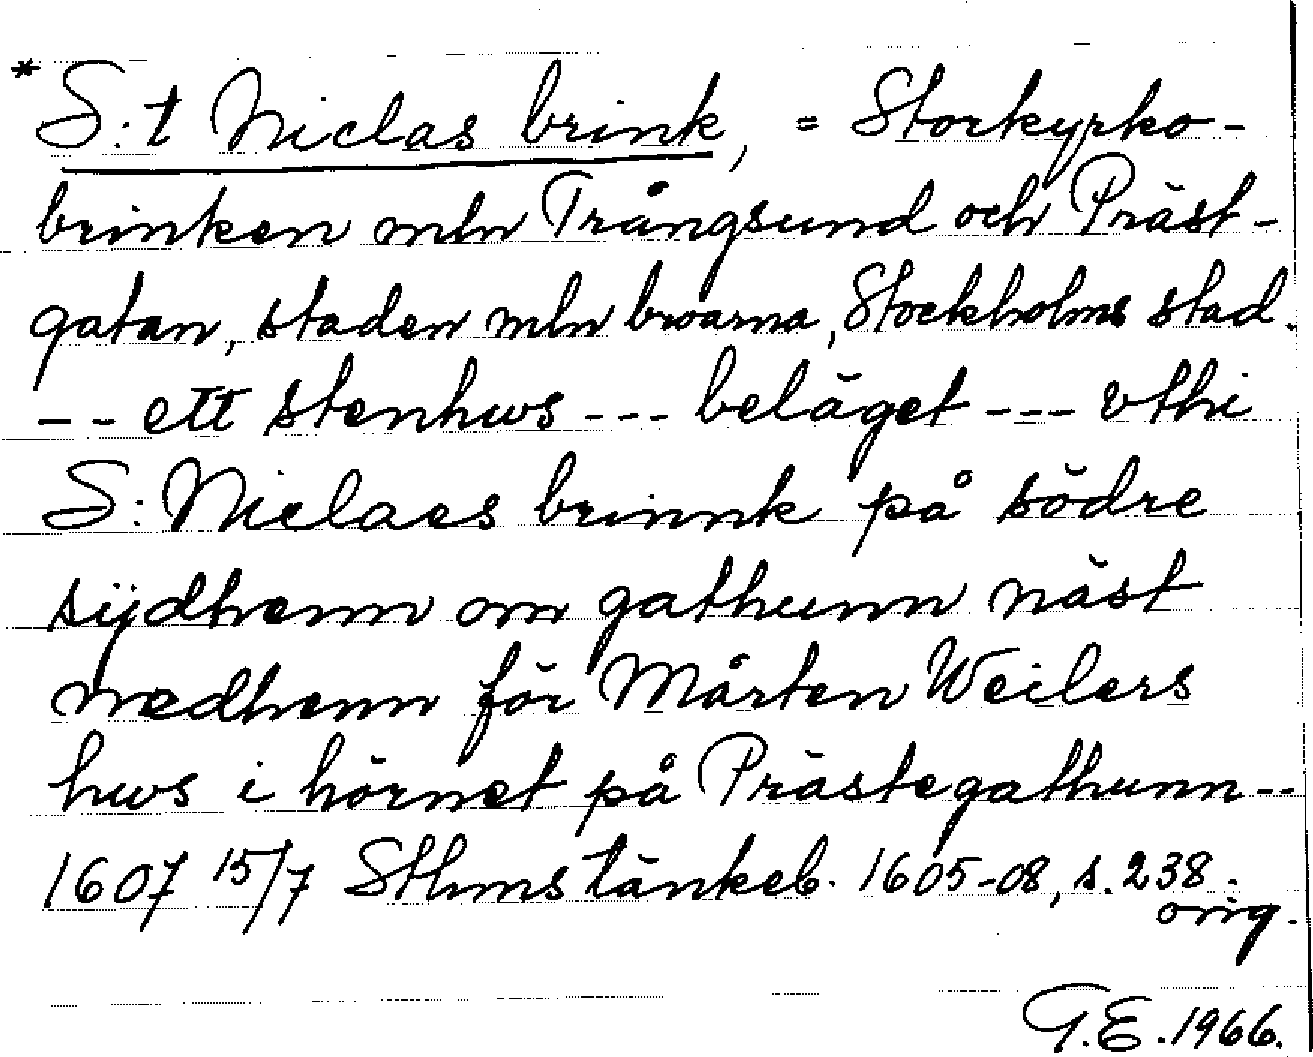 * S:t Niclas brink, = Storkyrko-
brinken mln Trångsund och Präst-
gatan, staden mln broarna, Stockholms stad.
-- ett stenhws --- beläget --- vthi
S: Niclaes brinnk på södre
sijdhenn om gathunn näst
nedhenn för Mårten Weilers
hws i hörnet på Prästegathunn --
1607 15/7 Sthms tänkeb. 1605-08, s. 238.
orig.
G.E. 1966.